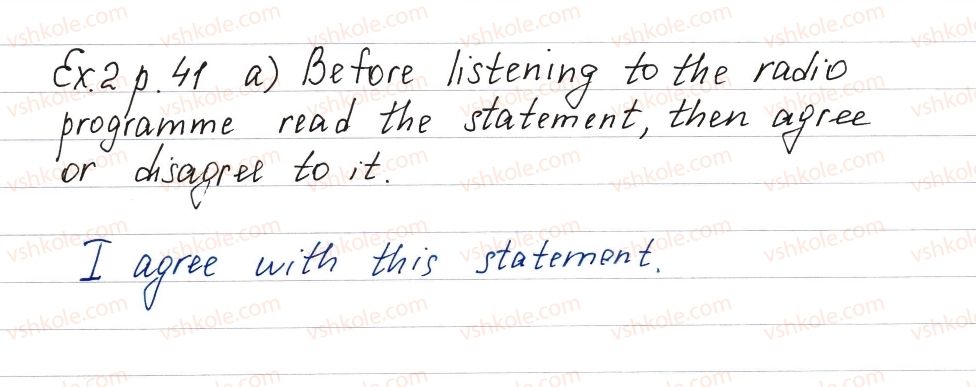 Ex.2 p.41 a) Before listening to the radio
programme read the statement, then agree
or disagree to it.
I agree with this statement.